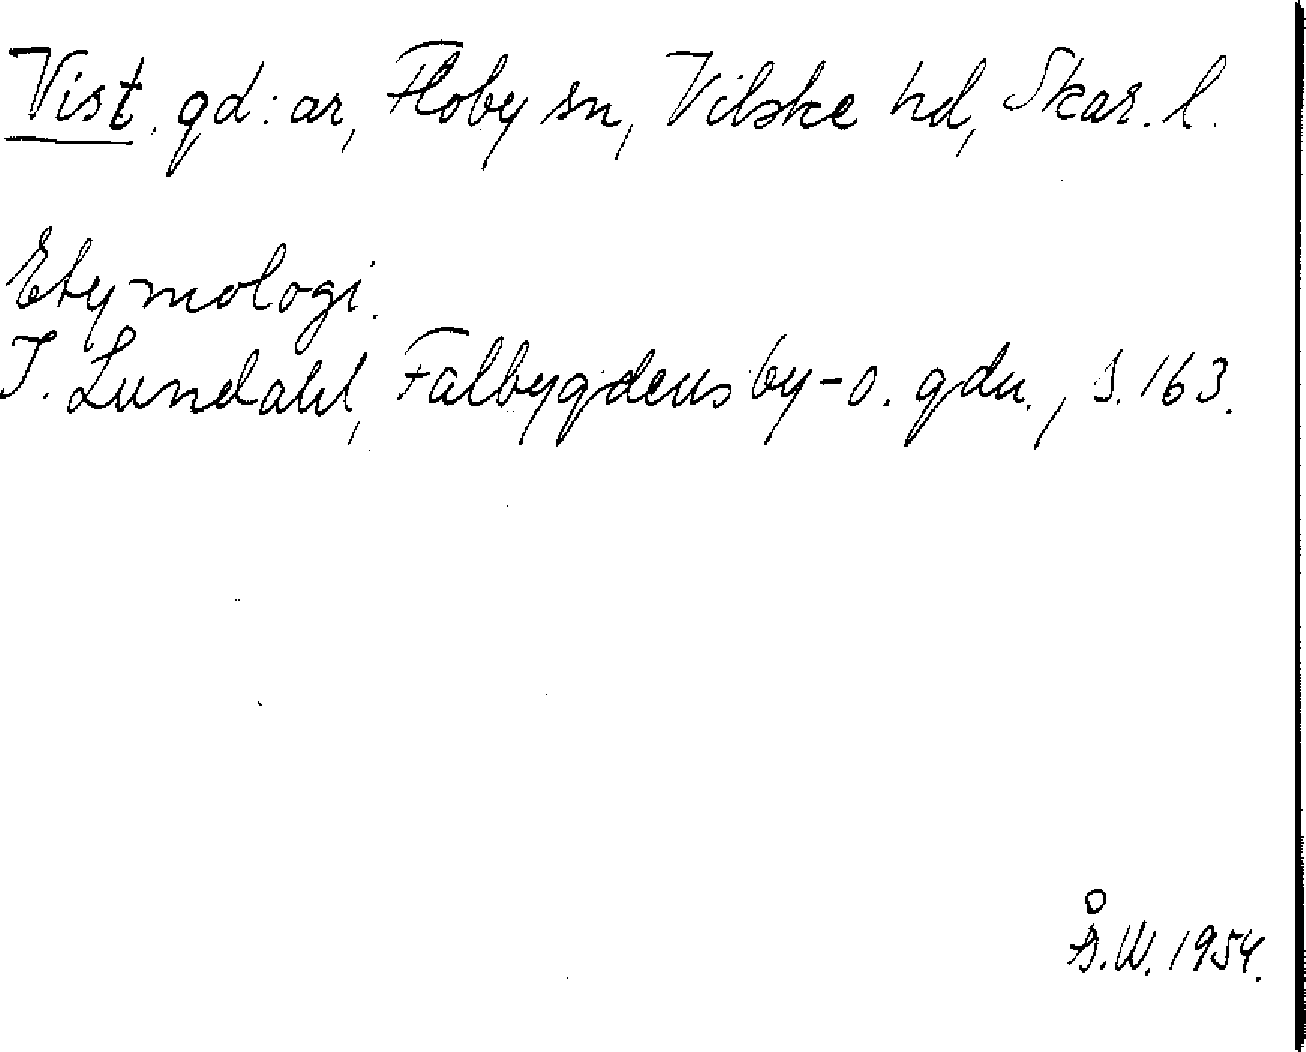 Vist. gd:ar, Floby sn, Vilske hd, Skar. l.
Etymologi.
I. Lundahl, Falbygdens by- o. gdn., s. 163.
Å.W. 1954.